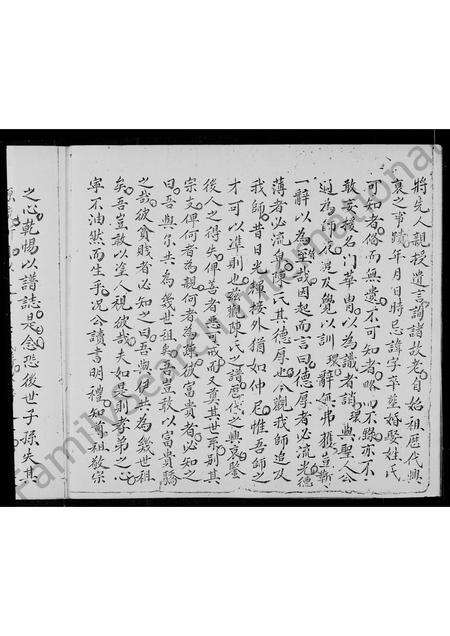 將先人親授遺言詢諸故老自始祖歷代興
衰之事蹟年月日時忌諱字平塋婚娶姓氏
可知者僃而無遺不可知者略而不錄亦不
敢妄援名门華胄以為識者誚 興聖人公
適為師
一辭以為至哉因起而言曰德厚者必流光德
薄者必流卑陳氏其德厚也今觀我師追及
我師昔日光輝接外猶如仲尼惟吾師之
才可以進則也縱觀陳氏之譜歷代之興衰鑒
後人之得失俾善者可戒而又責其世系別其
宗支俾何者為親何者為踈彼富貴者必知之
曰吾與尔共為幾世祖吾豈敢以富貴驕
之哉彼貧賤者必知之曰吾與伊共為幾世祖
矣吾豈敢以塗人視彼哉夫如是則孝弟之心
寧不油然而生乎况公讀書明禮知尊祖敬宗
之心乾惕以譜誌是念恐後世子孫失其
FamilySearch International